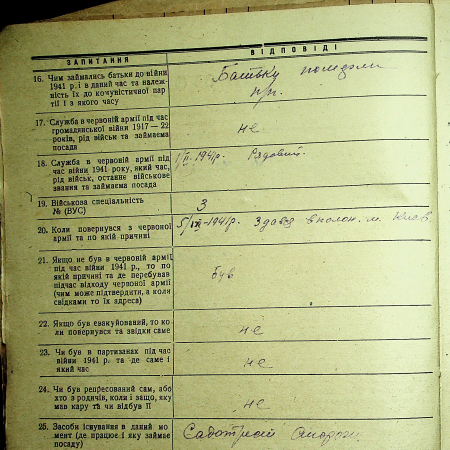 ЗАПИТАННЯ
ВІДПОВІДІ
16. Чим займались батьки до війни
1941 р. і в даний час та належ-
ність їх до комуністичної пар-
тії і з якого часу
Батьки
17. Служба в червоній армії під час
громадянської війни 1917 — 22
років, рід військ та займаема
посада
не
18. Служба в червоній армії під
час війни 1941 року, який час,
рід військ, останнє військове
звання та займаема посада
1941р. Рядовий.
19. Військова спеціальність
№ (ВУС)
3
20. Коли повернувся з червоної
армії та по якій причині
1941р. Здався в полон. м. Київ
21. Якщо не був в червоній армії
під час війни 1941 р., то по
якій причині та де перебував
підчас відходу червоної армії
(чим може підтвердити, а коли
свідками то їх адреса)
був
22. Якщо був евакуйований, то ко-
ли повернувся та звідки саме
не
23. Чи був в партизанах під час
війни 1941 р. та де саме і
який час
не
24. Чи був репресований сам, або
хто з родичів, коли і защо, яку
мав кару та чи відбув її
не
25. Засоби існування в даний мо-
мент (де працює і яку займає
посаду)
Садотрест